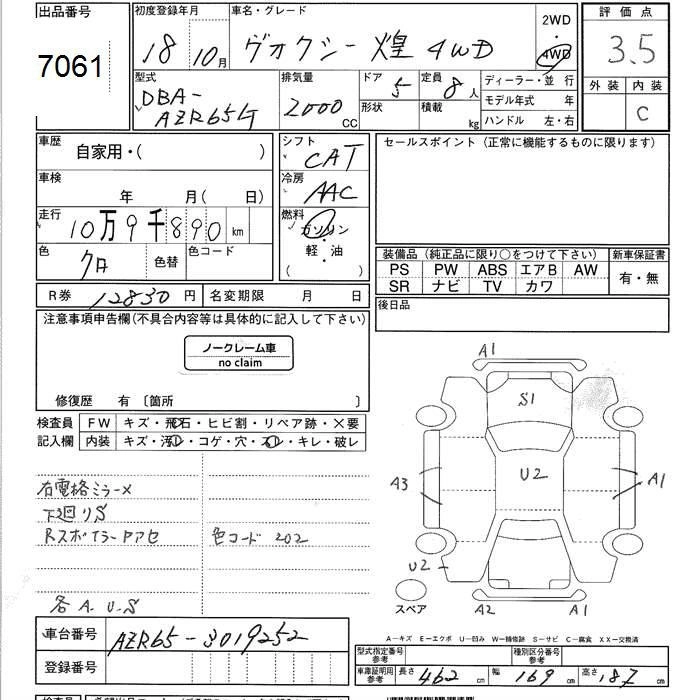 出品番号 7061
初度登録年月 18 10月
車名・グレード ヴォクシー 煌 4WD
2WD
4WD
評価点 3.5
外装 内装 C
型式 DBA-
AZR65G
排気量 2000 CC
ドア 5 定員 8人
形状 積載 kg
ディーラー・並行
モデル年式 年
ハンドル 左・右
車歴 自家用・( )
車検 年 月(日)
走行 10万9千890 km
色 クロ 色替 色コード
R券 12830円 名変期限 月 日
シフト CAT
冷房 AAC
燃料 ガソリン
軽・油
( )
セールスポイント(正常に機能するものに限ります)
装備品(純正品に限り○をつけて下さい) 新車保証書
PS PW ABS エアB AW 有・無
SR ナビ TV カワ
後日品
注意事項申告欄(不具合内容等は具体的に記入して下さい)
ノークレーム車
no claim
修復歴 有 〔箇所 〕
検査員 FW キズ・飛石・ヒビ割・リペア跡・×要
記入欄 内装 キズ・汚レ・コゲ・穴・スレ・キレ・破レ
右電格ミラー×
下廻りS
Rスポイラーアセ 色コード 202
各A.U.S
車台番号 AZR65-3019252
登録番号
A1
S1
U2
A3
A1
U2
スペア
A2 A1
A－キズ E－エクボ U－凹み W－補修跡 S－サビ C－腐食 XX－交換済
型式指定番号
参考
種別区分番号
参考
車庫証明用
参考
長さ 462 cm 幅 169 cm 高さ 187 cm